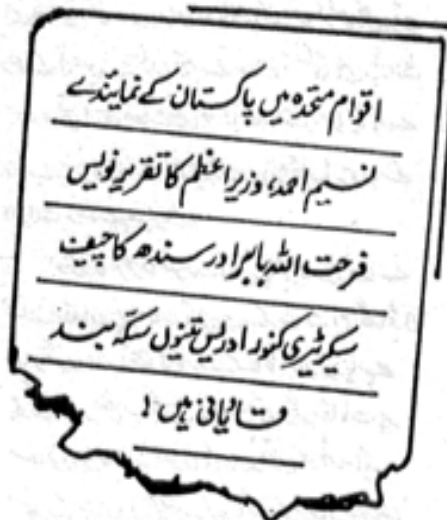 اقوام متحدہ میں پاکستان کے نمایندے
نسیم احمد، وزیراعظم کا تقریر نویس
فرحت اللہ بابر اور سندھ کا چیف
سیکرٹیری کنور ادریس تینوں سکہ بند
قادیانی ہیں !